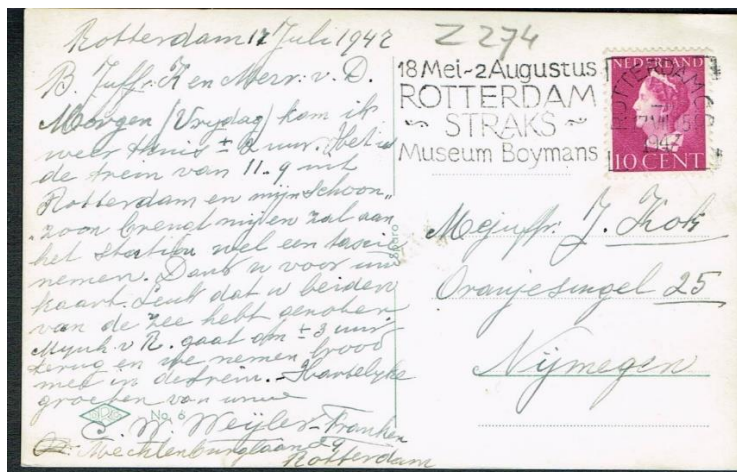 Rotterdam 17 Juli 1947
Z 274
B. Juffr. K en Mevr. v. D.
Morgen (Vrijdag) kom ik
weer thuis ± 2 uur. Met
de trein van 11.9 uit
Rotterdam en mijn Schoon„
zoon brengt mij en zal aan
het station wel een taxie
nemen. Dank u voor uw
kaart. Leuk dat u beiden
van de zee hebt genoten
v R. gaat om ± 3 uur
terug en we nemen brood
mee in de trein. Hartelijke
groeten van uwe
No. 6
C. W. Weijler-Franken
Mechlenburglaan
Rotterdam
18 Mei-2 Augustus
ROTTERDAM
STRAKS
Museum Boymans
NEDERLAND
10 CENT
ROTTERDAM C.S
1947
Mejuffr. J. Kok
Oranjesingel 25
Nijmegen